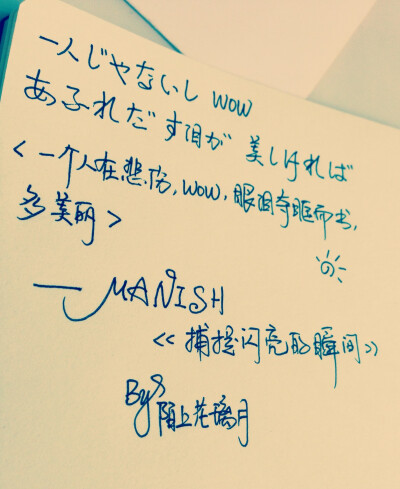 一人じゃないし wow
あふれだす泪が 美しければ
<一个人在悲伤,wow,眼泪夺眶而出,
多美丽>
— MANISH
<<捕捉闪亮的瞬间>>
By 陌上花璃月